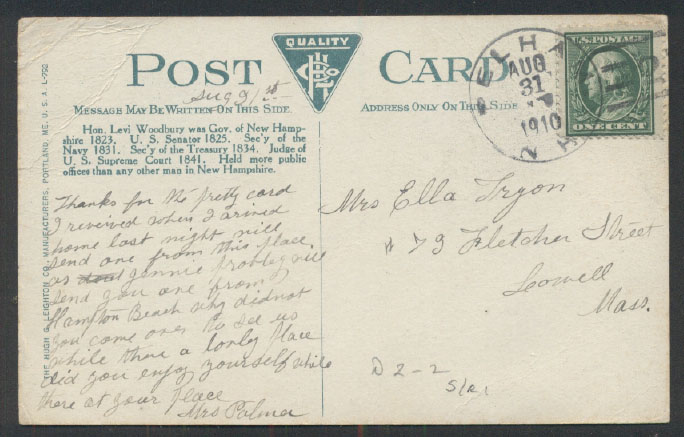 QUALITY
POST CARD
Aug 31st
MESSAGE MAY BE WRITTEN ON THIS SIDE
ADDRESS ONLY ON THIS SIDE
Hon. Levi Woodbury was Gov. of New Hamp-
shire 1823. U. S. Senator 1825. Sec'y of the
Navy 1831. Sec'y of the Treasury 1834. Judge of
U. S. Supreme Court 1841. Held more public
offices than any other man in New Hampshire.
Thanks for the pretty card
I received when I arived
home last night will
send one from this place.
as Jennie probley will
send you one from
Hampton Beach why didnot
you come over to see us
while there a lonly place
did you enjoy yourself while
there at your place
Mrs Palmer
THE HUGH C. LEIGHTON CO., MANUFACTURERS, PORTLAND, ME., U. S. A. L-750
PELHAM
AUG
31
1910
N H
U.S. POSTAGE
ONE CENT
Mrs Ella Tryon
# 79 Fletcher Street
Lowell
Mass.
D 2-2